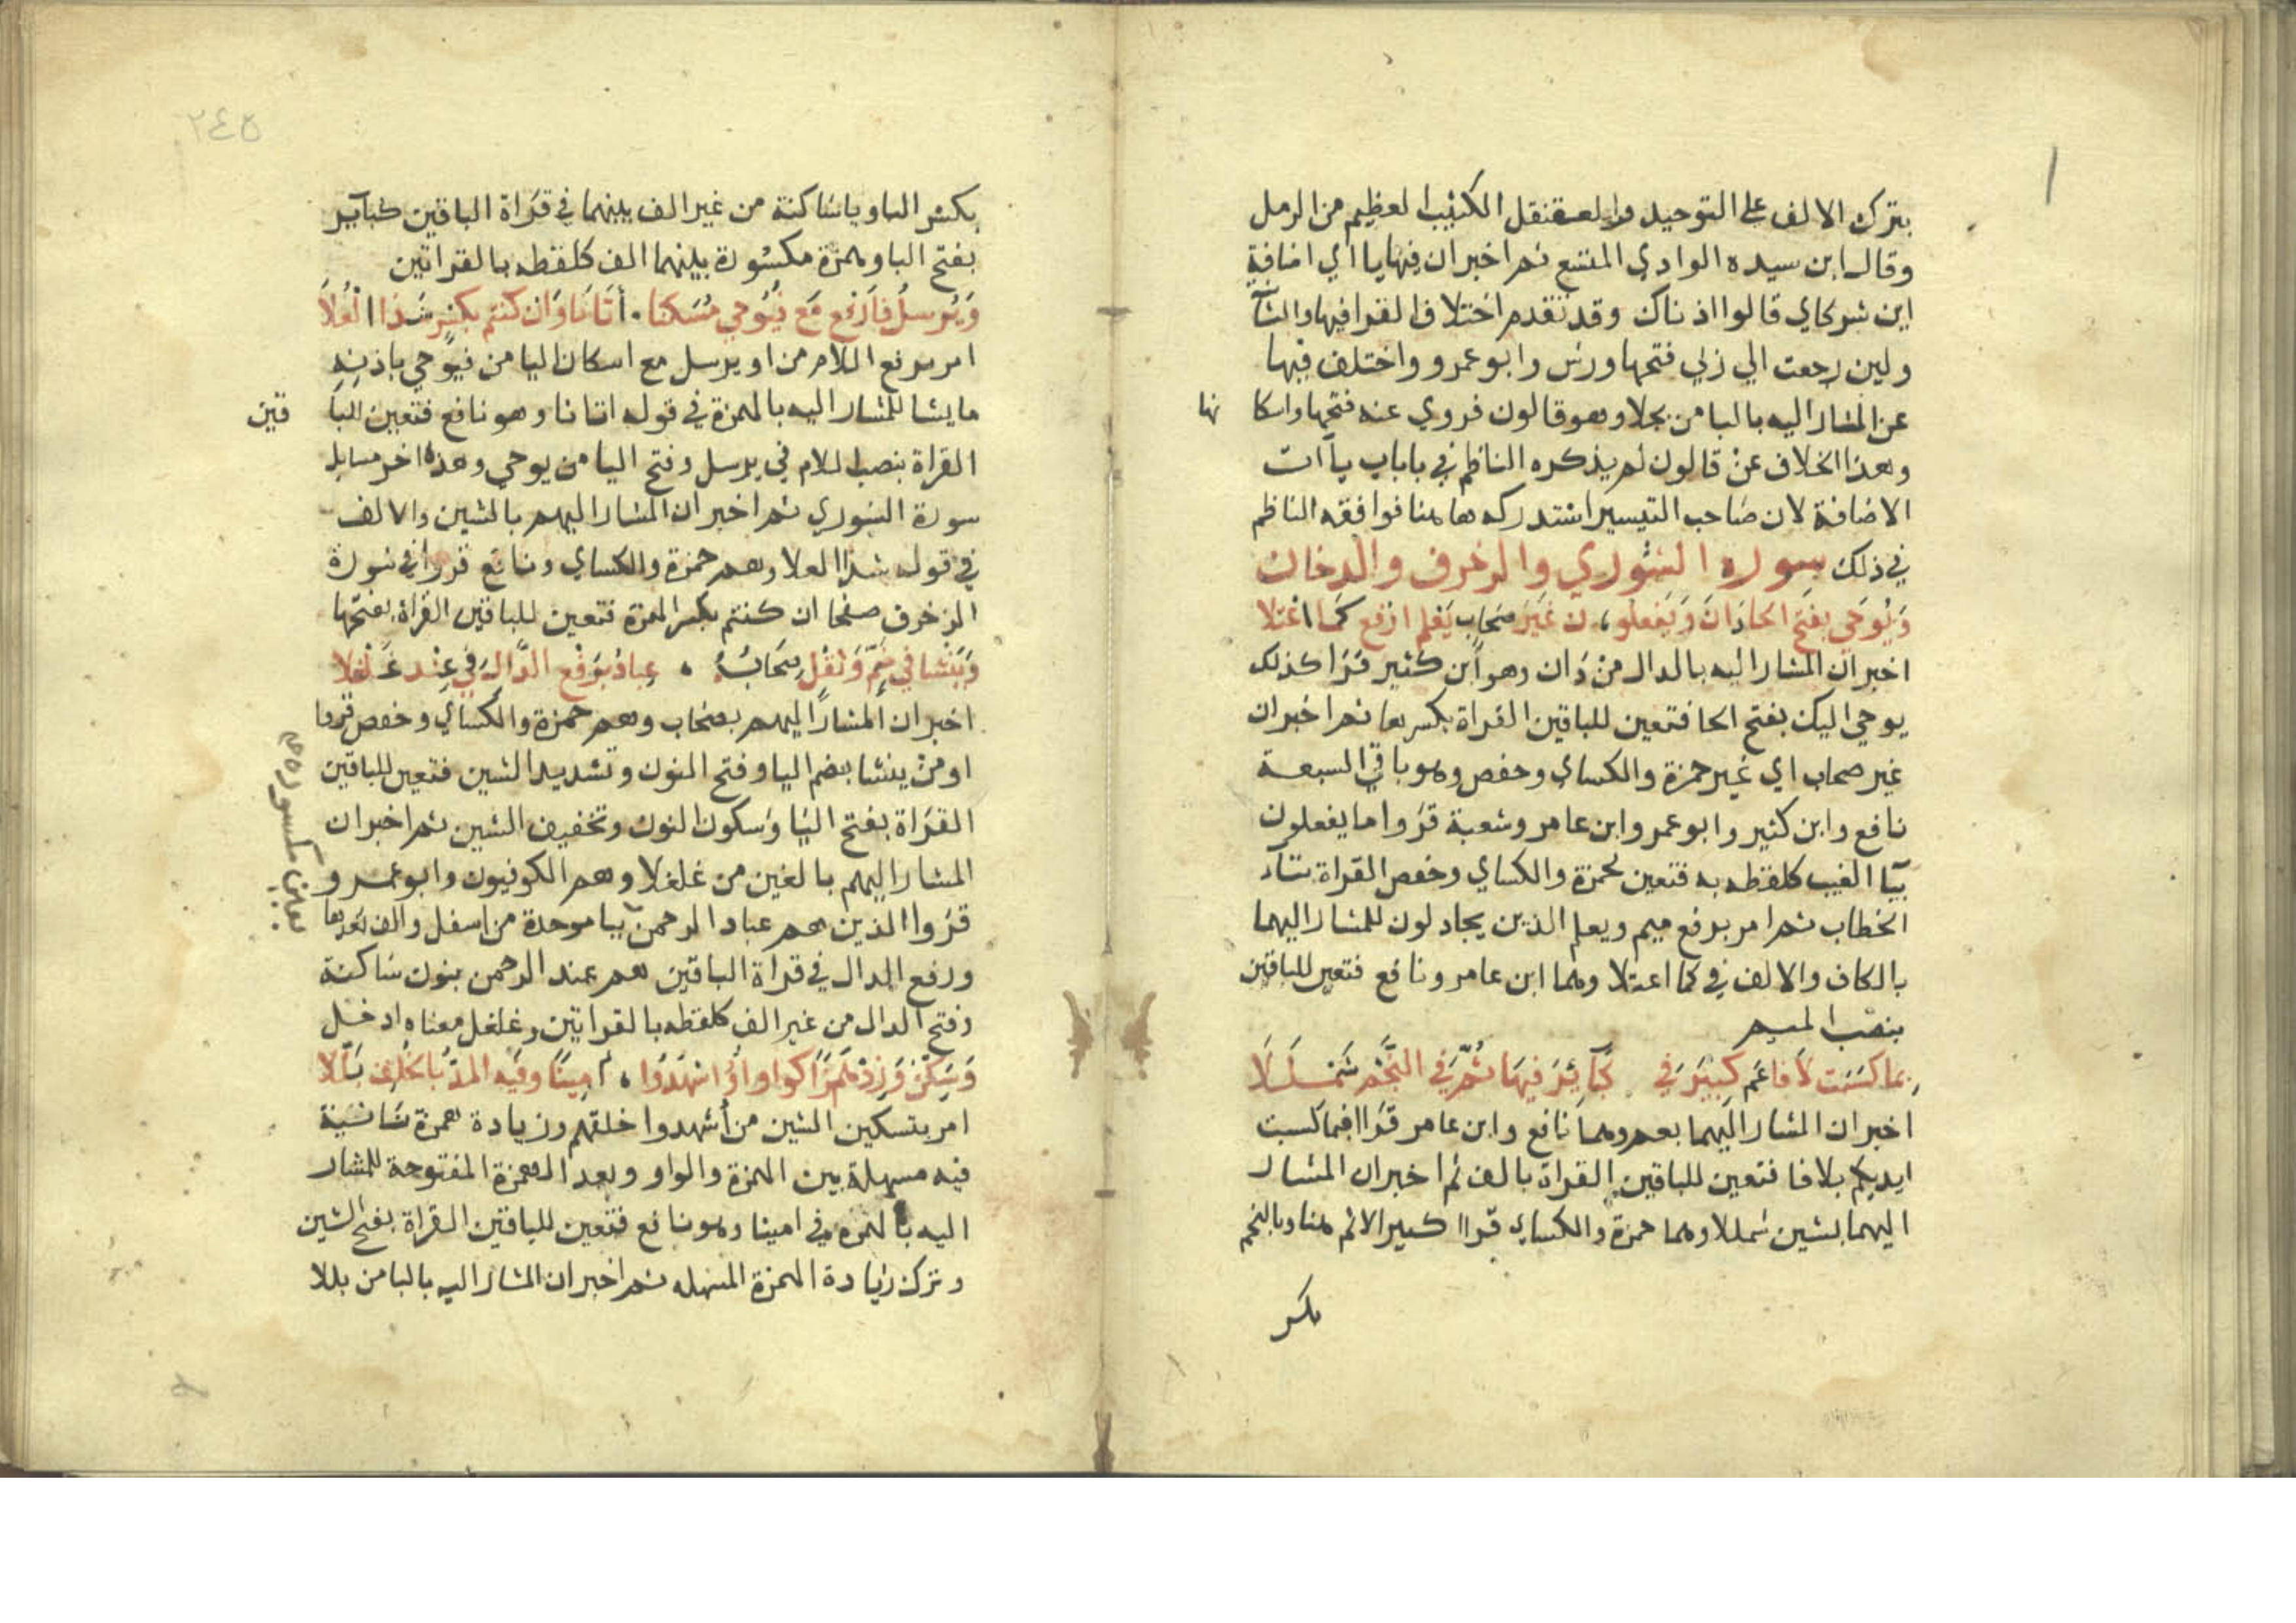 بترك الالف على التوحيد والعقنقل الكثيب العظيم من الرمل
وقال ابن سيده الوادي المتسع ثم اخبر ان فيها يااي اضافة
اين شركاي قالوا اذناك وقد تقدم اختلاف القرا فيها والثا
ولين رجعت الي ربي فتحها ورش وابو عمرو واختلف فيها
عن المشار اليه بالبا من بجلا وهو قالون فروي عنه فتحها واسكا نها
وهذا الخلاف عن قالون لم يذكره الناظم في باباب ياآت
الاضافة لان صاحب التيسير استدركه هاهنا فوافقه الناظم
في ذلك سورة الشوري والزخرف والدخان
وَيُوحَي بفتح الحا دَانَ وَيَفعلون غَيْرَ صحاب يَعْلم ارفع كما اعتلا
اخبر ان المشار اليه بالدال من دَان وهو ابن كثير قرا كذلك
يوحي اليك بفتح الحا فتعين للباقين القراة بكسرها ثم اخبر ان
غير صحاب اي غير حمزة والكساي وحفص وهو باقي السبعة
نافع وابن كثير وابو عمر وابن عامر وشعبة قروا ما يفعلون
بيا الغيب كلفظه به فتعين لحمزة والكساي وحفص القراة بتآء
الخطاب ثم امر برفع ميم ويعلم الذين يجادلون للمشار اليهما
بالكاف والالف في كما اعتلا وهما ابن عامر ونافع فتعين للباقين
بنصب الميم
بما كسبت لا فا عم كبير في كبآئر فيها ثم في النجم شمللا
اخبر ان المشار اليهما بعم وهما نافع وابن عامر قرا بما كسبت
ايديكم بلا فا فتعين للباقين القراة بالف ثم اخبر ان المشار
اليهما بشين شمللا وهما حمزة والكساي قرا كبير الاثم هنا وبالنجم
بكسر
٢٤٥
بكسر الباء وياساكنة من غير الف بينهما في قراة الباقين كبآير
بفتح الباء وهمزة مكسورة بينهما الف كلفظه بالقراتين
وَيُرسلُ فارفع مع فيُوحي مُسكنا • أتانا وان كنتم بكسر شذا العُلاَ
امر برفع اللام من او يرسل مع اسكان اليا من فيوحي باذنه
مايشا للمشار اليه بالهمزة في قوله اتانا وهو نافع فتعين للبا قين
القراة بنصب اللام في يرسل وفتح اليا من يوحي وهذه اخر مسايل
سورة الشوري ثم اخبر ان المشار اليهم بالشين والالف
في قوله شذا العلا وهم حمزة والكساي ونافع قروا في سورة
الزخرف صفحا ان كنتم بكسر الهمزة فتعين للباقين القراة بفتحها
وَيَنْشا في ضمّ وَثقْل صحابُهُ • عِبادُ بِرَفع الدَّال في عِنْد غَلْغلا
اخبر ان المشار اليهم بصحاب وهم حمزة والكساي وحفص قروا
اومن ينشا بضم اليا وفتح النون وتشديد الشين فتعين للباقين
القراة بفتح اليا وسكون النون وتخفيف الشين ثم اخبر ان
المشار اليهم بالغين من غلغلا وهم الكوفيون وابو عمرو
قروا الذين هم عباد الرحمن ببا موحدة من اسفل والف بعدها
ورفع الدال في قراة الباقين هم عند الرحمن بنون ساكنة
وفتح الدال من غير الف كلفظه بالقراتين وغلغل معناه ادخل
وَسَكّن وَزِدْ هَمزًا كواو اَؤُشهدُوا • أمينًا وفيه المدّ بالخُلف بَلّلا
امر بتسكين الشين من أشهدوا خلقهم وزيادة همزة ثانية
فيه مسهلة بين الهمزة والواو وبعد الهمزة المفتوحة للمشار
اليه بالهمزة في امينا وهو نافع فتعين للباقين القراة بفتح الشين
وترك زيادة الهمزة المسهله ثم اخبر ان المشار اليه بالبا من بللا